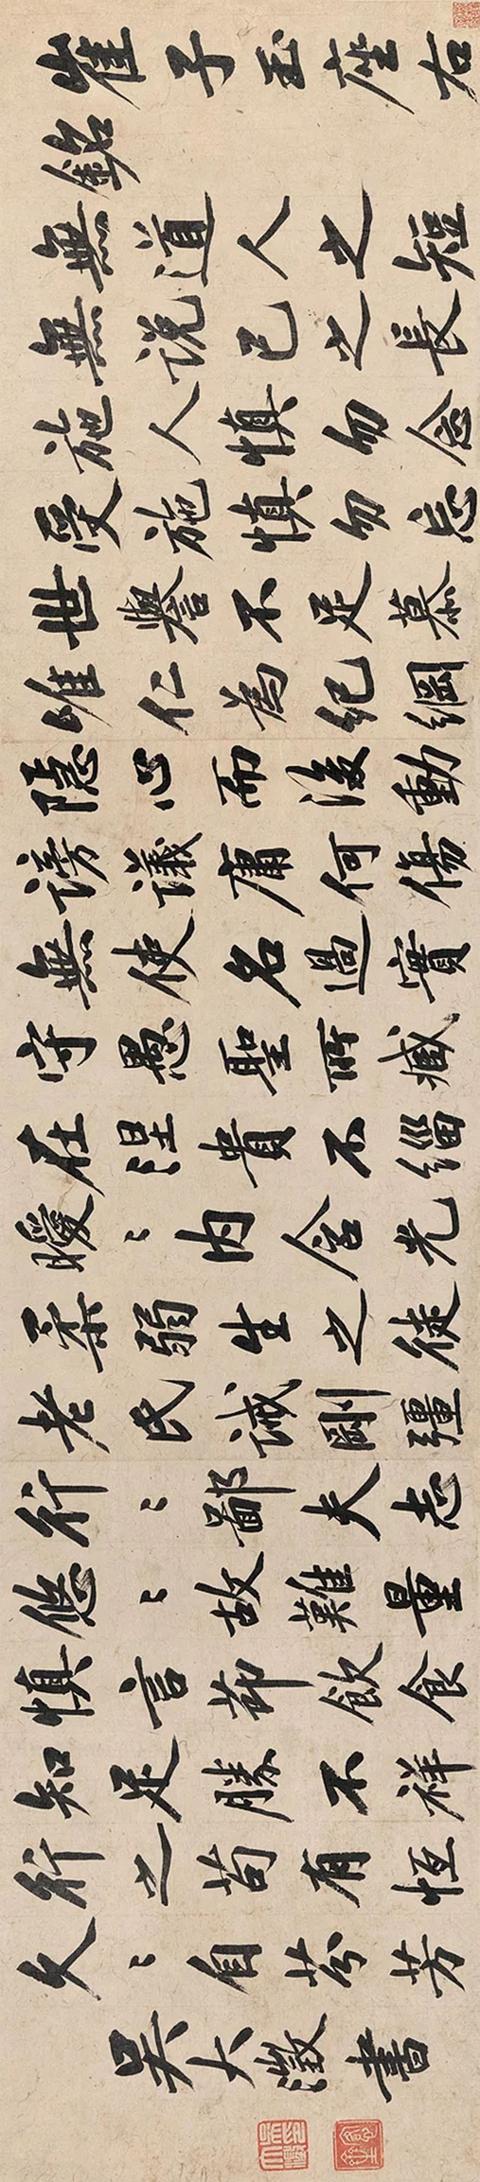 崔子玉座右
銘
無道人之短
無說己之長
施人慎勿念
受施慎勿忘
世譽不足慕
唯仁為紀綱
隱心而後動
謗議庸何傷
無使名過實
守愚聖所臧
在涅貴不緇
曖〻內含光
柔弱生之徒
老氏誡剛彊
行〻鄙夫志
悠〻故難量
慎言節飲食
知足勝不祥
行之苟有恆
久〻自芬芳
吳大澂書